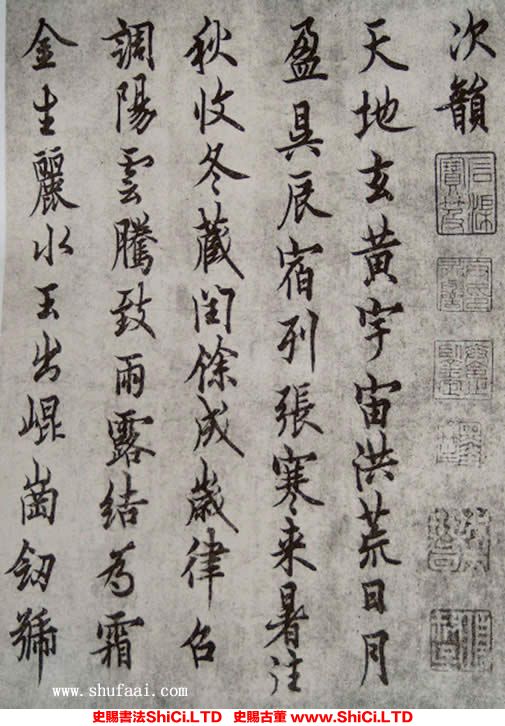 次韻
天地玄黃宇宙洪荒日月
盈昃辰宿列張寒来暑往
秋收冬藏閏餘成歲律召
調陽雲騰致雨露結為霜
金生麗水玉出崐崗劒號
www.shufaai.com
史賜書法ShiCi.LTD 史賜古董 www.ShiCi.LTD